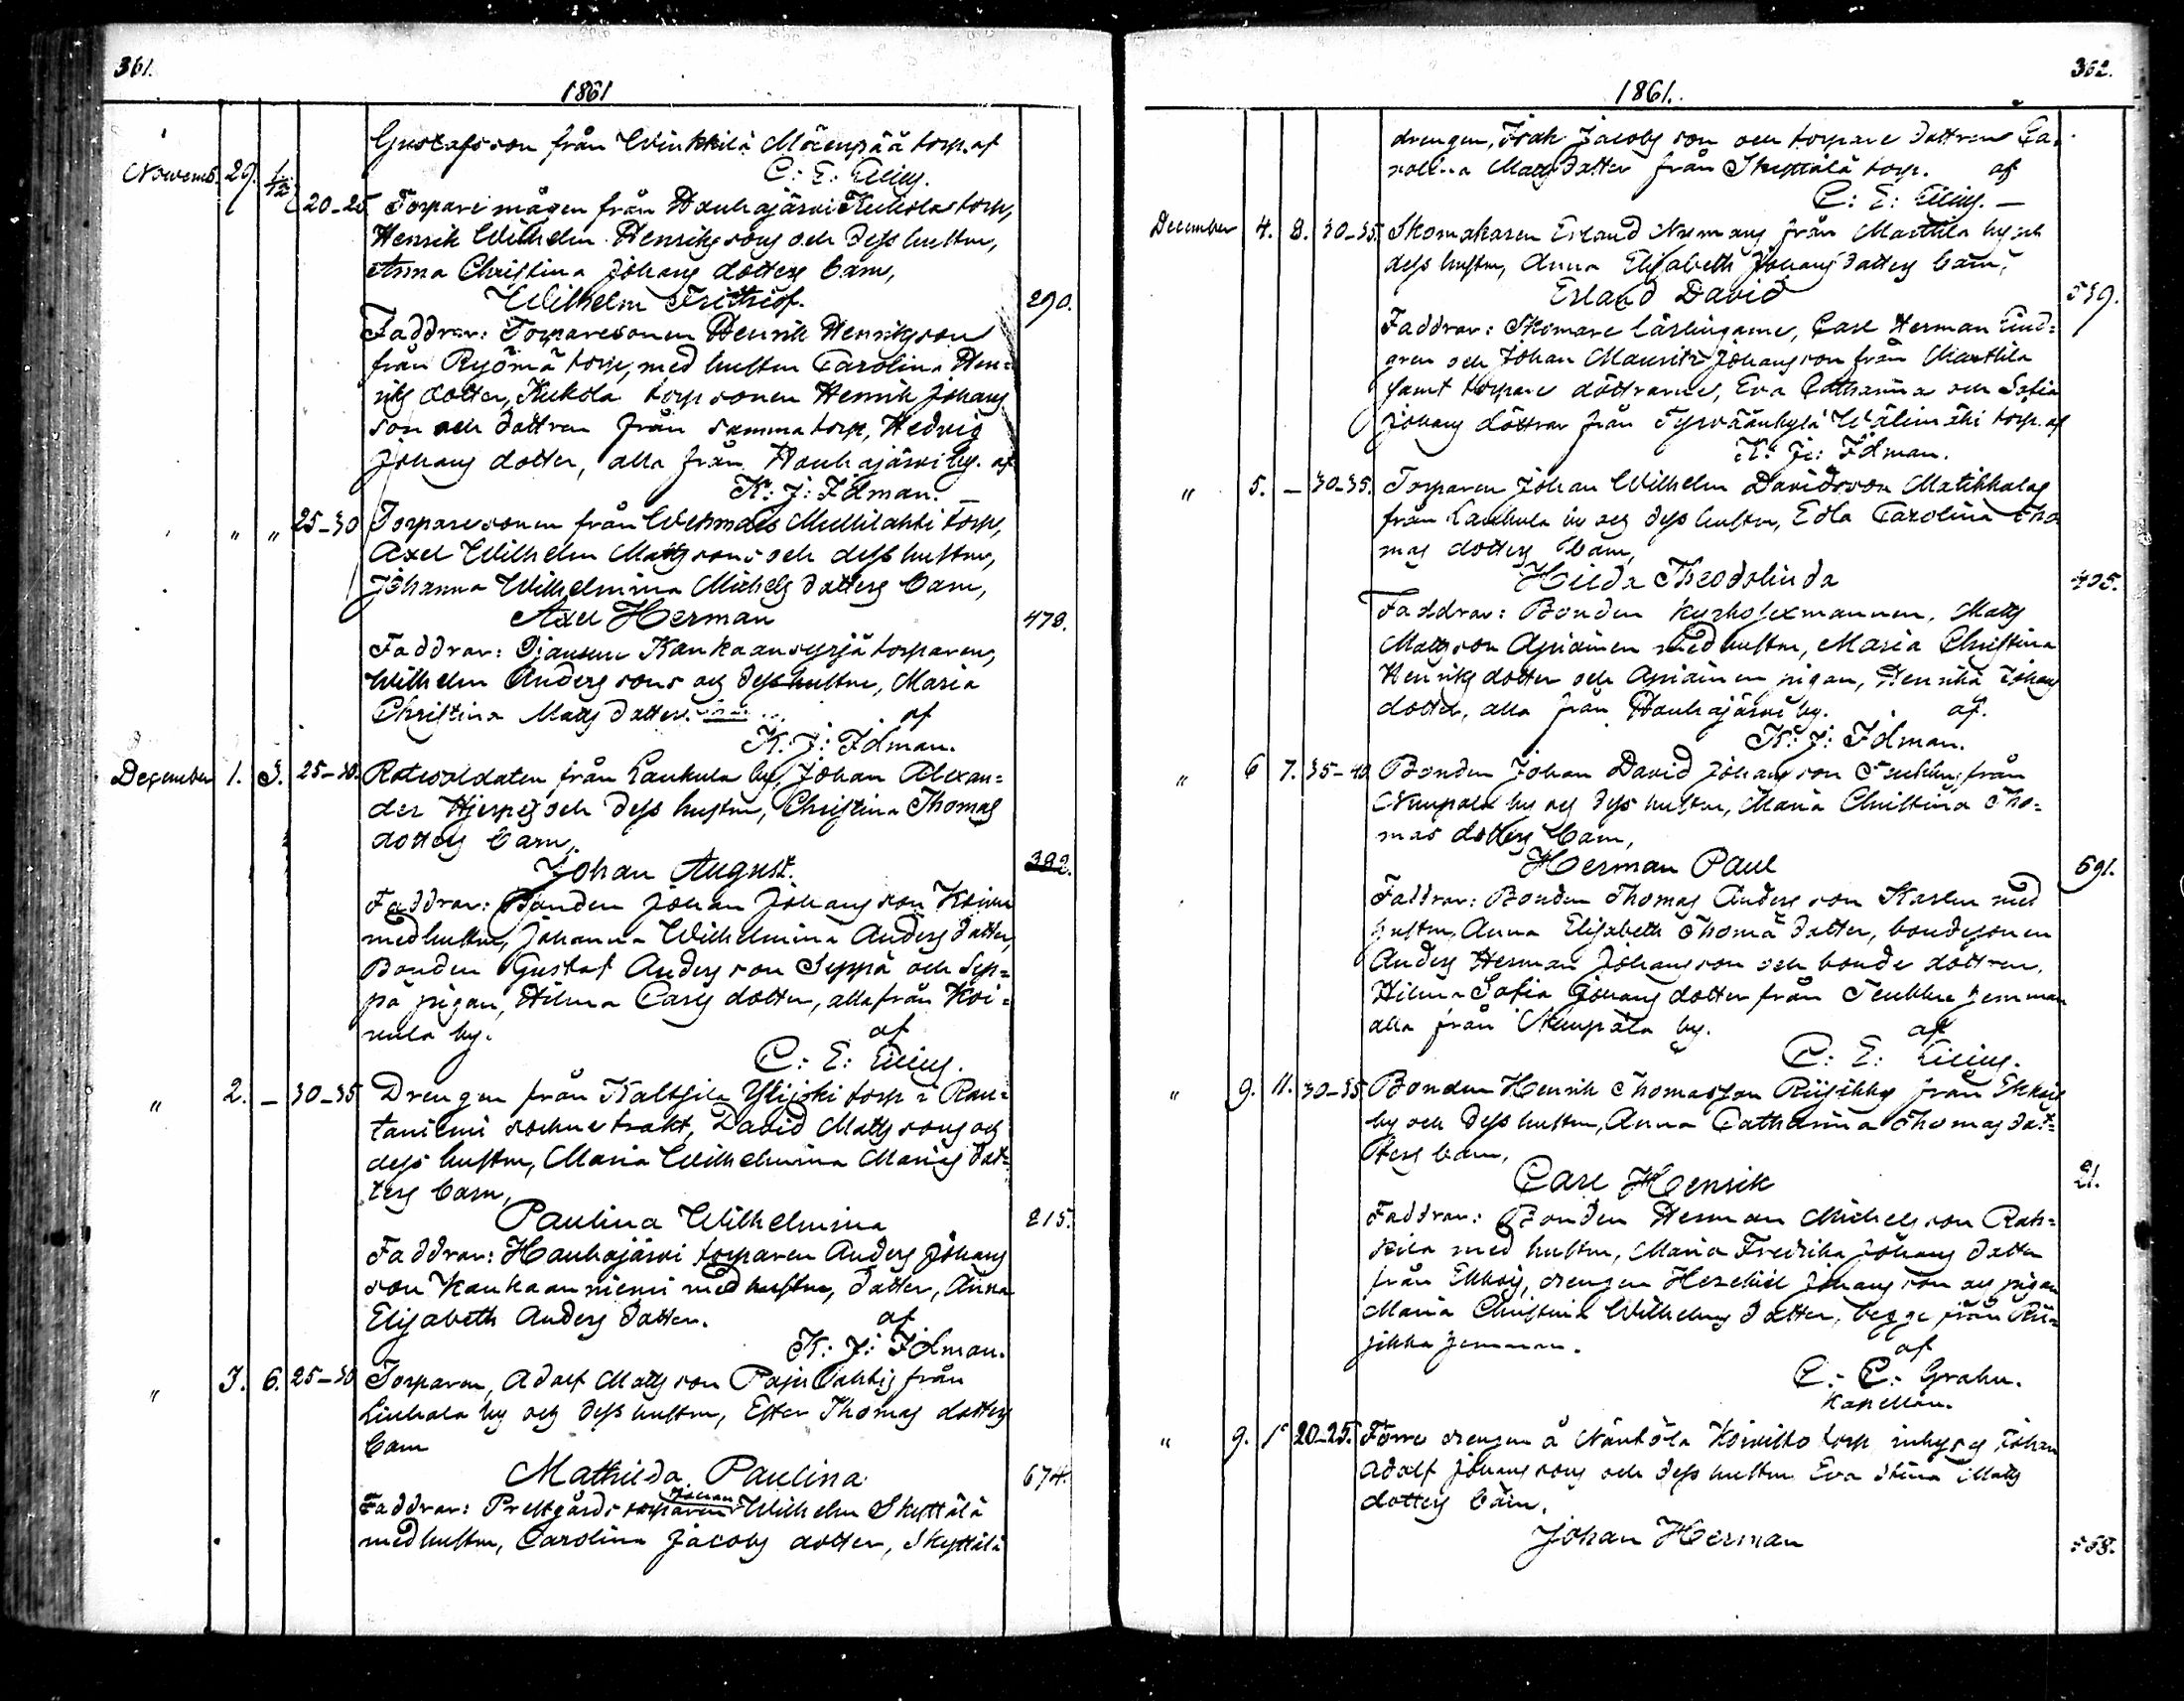 361.
1861
Gustafsson från Winkkilä Mäenpää torp. af
C: E: Lilius.
Novemb. 29. 1/12 20-25 Torpare mågen från Hauhajärvi Kukola torp,
Henrik Wilhelm Henrikssons och dess hustru,
Anna Christina Johans dotters barn,
Wilhelm Frithiof. 290.
Faddrar: Torparesonen Henrik Henriksson
från torp, med hustru Carolina Hen=
riks dotter, Kukola torp sonen Henrik Johans
son och dottren från samma torp, Hedvig
Johans dotter, alla från Hauhajärvi by. af
K: J: Idman.
" " 25-30 Torparesonen från Mullilahti torp,
Axel Wilhelm Matssons och dess hustru,
Johanna Wilhelmina Michels dotters barn,
Axel Herman 478.
Faddrar: Kankaansyrjä torparen,
Wilhelm Anders sons och dess hustru, Maria
Christina Mats dotter. af
K: J: Idman.
December 1. 3. 25-30. Rotesoldaten från Laukula by, Johan Alexan=
der Hjerpes och dess hustru, Christina Thomas
dotters barn,
Johan August. 382.
Faddrar: Bonden Johan Johans son
med hustru, Johanna Wilhelmina Anders dotter,
Bonden Gustaf Anders son Seppä och Sep=
pä pigan, Hilma Carls dotter, alla från Koi=
nula by. af
C: E: Lilius.
" 2. – 30-35 Drengen från Kaltsila Ylijoki torp i Rau=
taniemi sockne trakt, David Mats sons och
dess hustru, Maria Wilhelmina dot=
ters barn,
Paulina Wilhelmina 215.
Faddrar: Hauhajärvi torparen Anders Johans
son Kankaanniemi med hustru, dotter, Anna
Elisabeth Anders dotter. af
K: J: Idman.
" 3. 6. 25-30 Torparen, Adolf Mats son Pajulahtis från
Liuhala by och dess hustru, Ester Thomas dotters
barn
Mathilda Paulina 674.
Johan
Faddrar: Prestgårds torparen Wilhelm Skyttälä
med hustru, Carolina Jacobs dotter, Skyttälä
362.
1861.
drengen, Isak Jacobs son och torpare dottren Ca=
rolina Mats dotter från Skyttälä torp. af
C: E: Lilius. –
December 4. 8. 30-35. Skomakaren Erland från Marttila by och
dess hustru, Anna Elisabeth Johans dotters barn,
Erland David 539.
Faddrar: Skomare lärlingarne, Carl Herman Lind=
gren och Johan Mauritz Johansson från Marttila
samt torpare döttrarne, Eva Catharina och Sofia
Johans döttrar från Tyrväänkylä Wälimäki torp. af
K: J: Idman.
" 5. – 30-35. Torparen Johan Wilhelm Davidsson Matikkalas
från Laukula by och dess hustru, Edla Carolina Tho
mas dotters barn,
Hilda Theodolinda 405.
Faddrar: Bonden kyrko sexmannen, Mats
Mats son med hustru, Maria Christina
Henriks dotter och pigan, Henrika Johans
dotter, alla från Hauhajärvi by. af.
K: J: Idman.
" 6 7. 35-40 Bonden Johan David Johans son från
by och dess hustru, Maria Christina Tho=
mas dotters barn,
Herman Paul 691.
Faddrar: Bonden Thomas Anders son med
hustru, Anna Elisabeth Thomä dotter, bondesonen
Anders Herman Johansson och bonde dottren,
Hilma Sofia Johans dotter från hemman
alla från by. af
C: E: Lilius.
" 9. 11. 30-35 Bonden Henrik Thomasson Riisikkas från
by och dess hustru, Anna Catharina Thomas dot=
ters barn,
Carl Henrik 21.
Faddrar: Bonden Herman Michelsson Rah=
kila med hustru, Maria Fredrika Johans dotter
från drengen Hezekiel Johans son och pigan
Maria Christina Wilhelms dotter, begge från Rii=
sikka hemman. af
C: E: Grahn.
Kapellan.
" 9. 1 20-25. Förre drengen å Näntölä Koivisto torp inhyses Johan
Adolf Johans sons och dess hustru Eva Stina Mats
dotters barn,
Johan Herman 558.